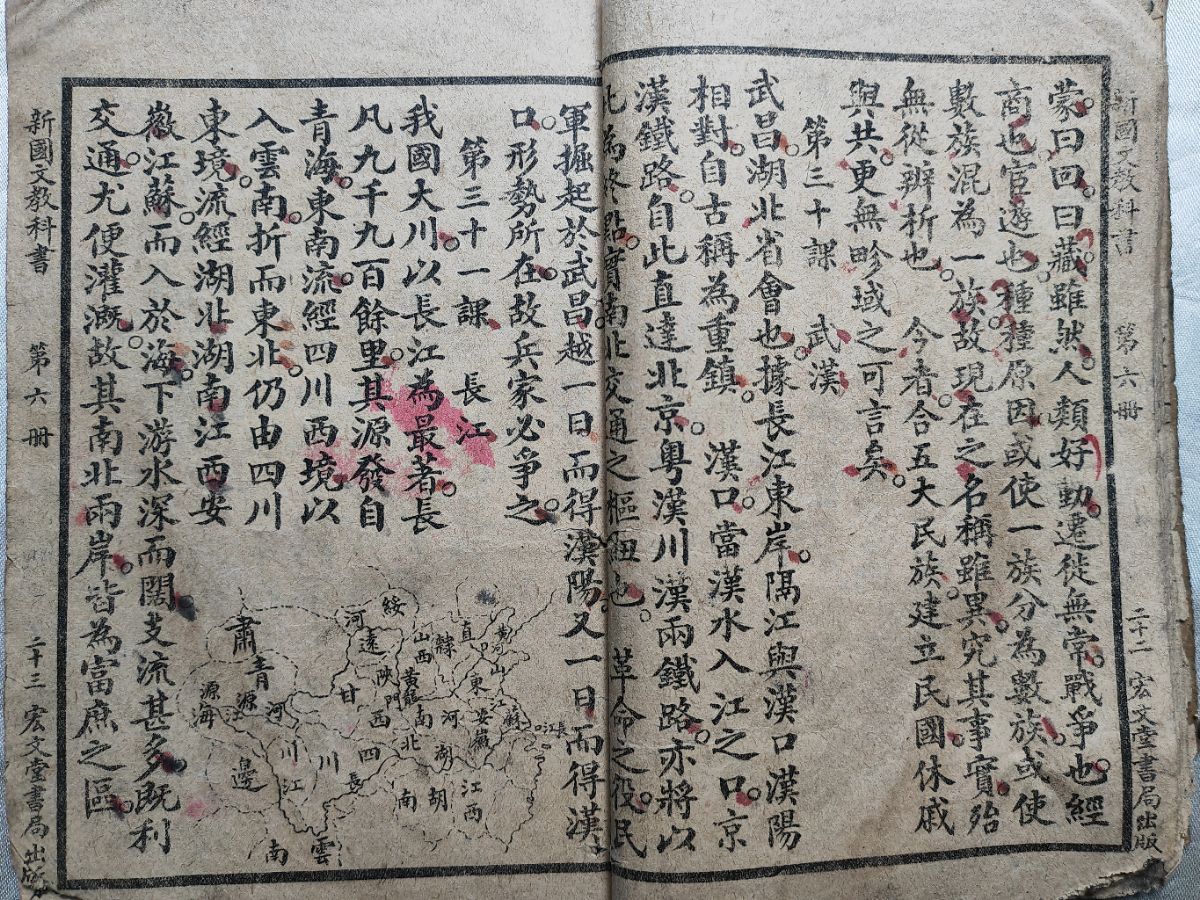 新國文教科書 第六冊 二十二 宏文堂書局出版
蒙曰回曰藏雖然人類好動遷徙無常戰爭也經
商也官遊也種種原因或使一族分為數族或使
數族混為一族故現在之名稱雖異究其事實殆
無從辨析也 今者合五大民族建立民國休戚
與共更無畛域之可言矣
第三十課 武漢
武昌湖北省會也據長江東岸隔江與漢口漢陽
相對自古稱為重鎮 漢口當漢水入江之口京
漢鐵路自此直達北京粵漢川漢兩鐵路亦將以
此為終點實南北交通之樞紐也 革命之役民
軍掘起於武昌越一日而得漢陽又一日而得漢
口形勢所在故兵家必爭之
第三十一課 長江
我國大川以長江為最著長
凡九千九百餘里其源發自
青海東南流經四川西境以
入雲南折而東北仍由四川
東境流經湖北湖南江西安
徽江蘇而入於海下游水深而闊支流甚多既利
交通尤便灌溉故其南北兩岸皆為富庶之區
綏
遠
河
肅
青
源
海
江
源
河
甘
陝
西
門
山西
黃龍
直
隸
黃河
山
東
河
南
安
徽
江
蘇
長江
四
川
川
江
邊
長
湖
北
湖
南
江
西
雲
南
新國文教科書 第六冊 二十三 宏文堂書局出版